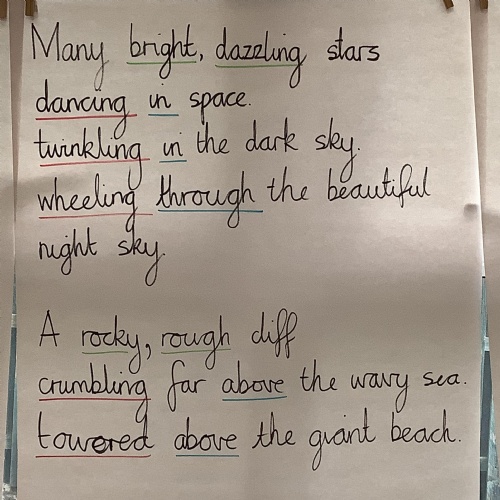 Many bright, dazzling stars
dancing in space.
twinkling in the dark sky.
wheeling through the beautiful
night sky.
A rocky, rough cliff
crumbling far above the wavy sea.
towered above the giant beach.